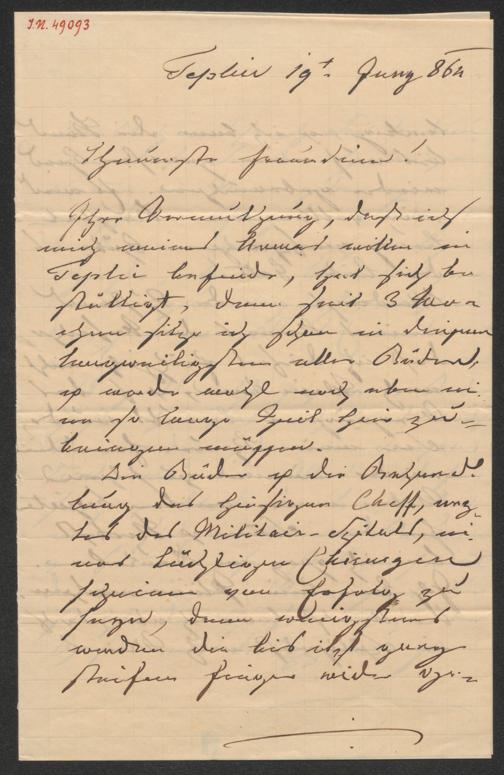 I.N. 49093
Teplic 19t. Juny 864
Theuerste Freundin!
Ihre Vermuthung, daß ich
mich meines Armes willen in
Teplic befinde, hat sich be
stättigt, denn seit 3 Wo=
chen sitze ich schon in diesem
langweiligsten aller Bäder,
& werde wohl noch eben ei
ne so lange Zeit hier zu=
bringen müssen.
Die Bäder & die Behand
lung des hiesigen Cheff, arz=
tes des Militair-Spitals, ei=
nes tüchtigen Chirurgen
scheinen von Erfolg zu
seyn, denn wenigstens
werden die bis itzt ganz
steifen Finger wider ge=